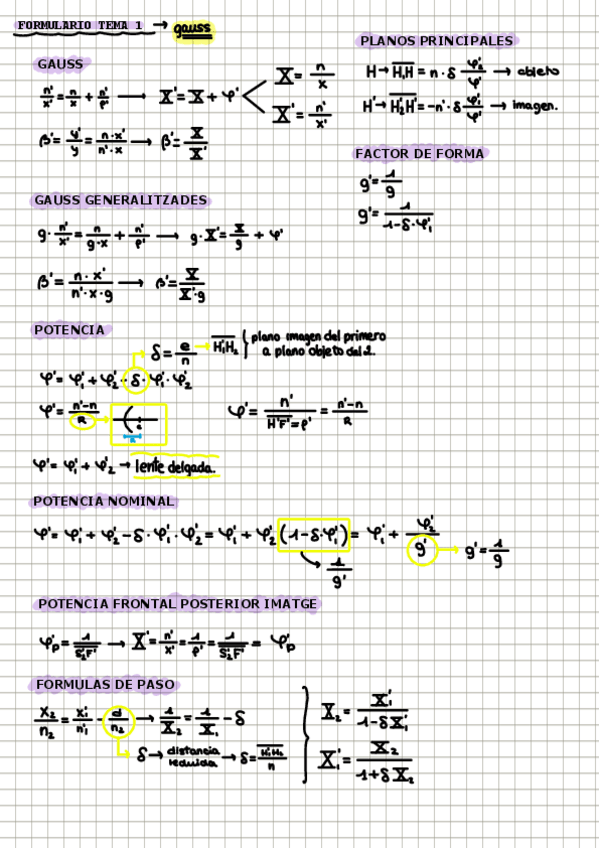 FORMULARIO TEMA 1 → gauss
GAUSS
n'/x' = n/x + n'/f' → X' = X + φ'
X = n/x
X' = n'/x'
β' = y'/y = n·x'/n'·x → β' = X/X'
GAUSS GENERALITZADES
g·n'/x' = n/g·x + n'/f' → g·X' = X/g + φ'
β' = n·x'/n'·x·g → β' = X/X'·g
POTENCIA
δ = e/n → H'1H2 { plano imagen del primero
a plano objeto del 2.
φ' = φ'1 + φ'2 · δ · φ'1 · φ'2
φ' = n'-n/R
φ' = n'/H'F' = f' = n'-n/R
φ' = φ'1 + φ'2 → lente delgada.
POTENCIA NOMINAL
φ' = φ'1 + φ'2 - δ·φ'1·φ'2 = φ'1 + φ'2 (1-δ·φ'1) = φ'1 + φ'2/g' → g' = 1/g
1/g'
POTENCIA FRONTAL POSTERIOR IMATGE
φ'p = 1/S'2F' → X' = n'/x' = 1/f' = 1/S'2F' = φ'p
FORMULAS DE PASO
x2/n2 = x'1/n'1 - d/n2 → 1/X2 = 1/X'1 - δ
δ → distancia reducida → δ = H'1H2/n
X2 = X'1/1-δX'1
X'1 = X2/1+δX2
PLANOS PRINCIPALES
H → H1H = n·δ φ'2/φ' → objeto
H' → H'2H' = -n'·δ φ'1/φ' → imagen.
FACTOR DE FORMA
g' = 1/g
g' = 1/1-δ·φ'1